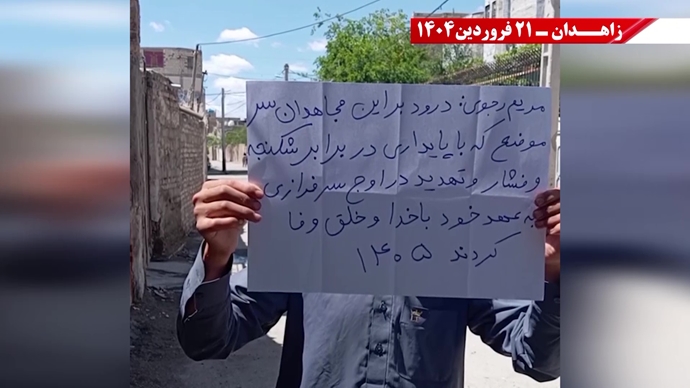 زاهدان ـ ۲۱ فروردین۱۴۰۴
مریم رجوی: درود بر این مجاهدان سر
موضع که با پایداری در برابر شکنجه
و فشار و تهدید در اوج سرفرازی
به عهد خود با خدا و خلق وفا
کردند ۱۴۰۵